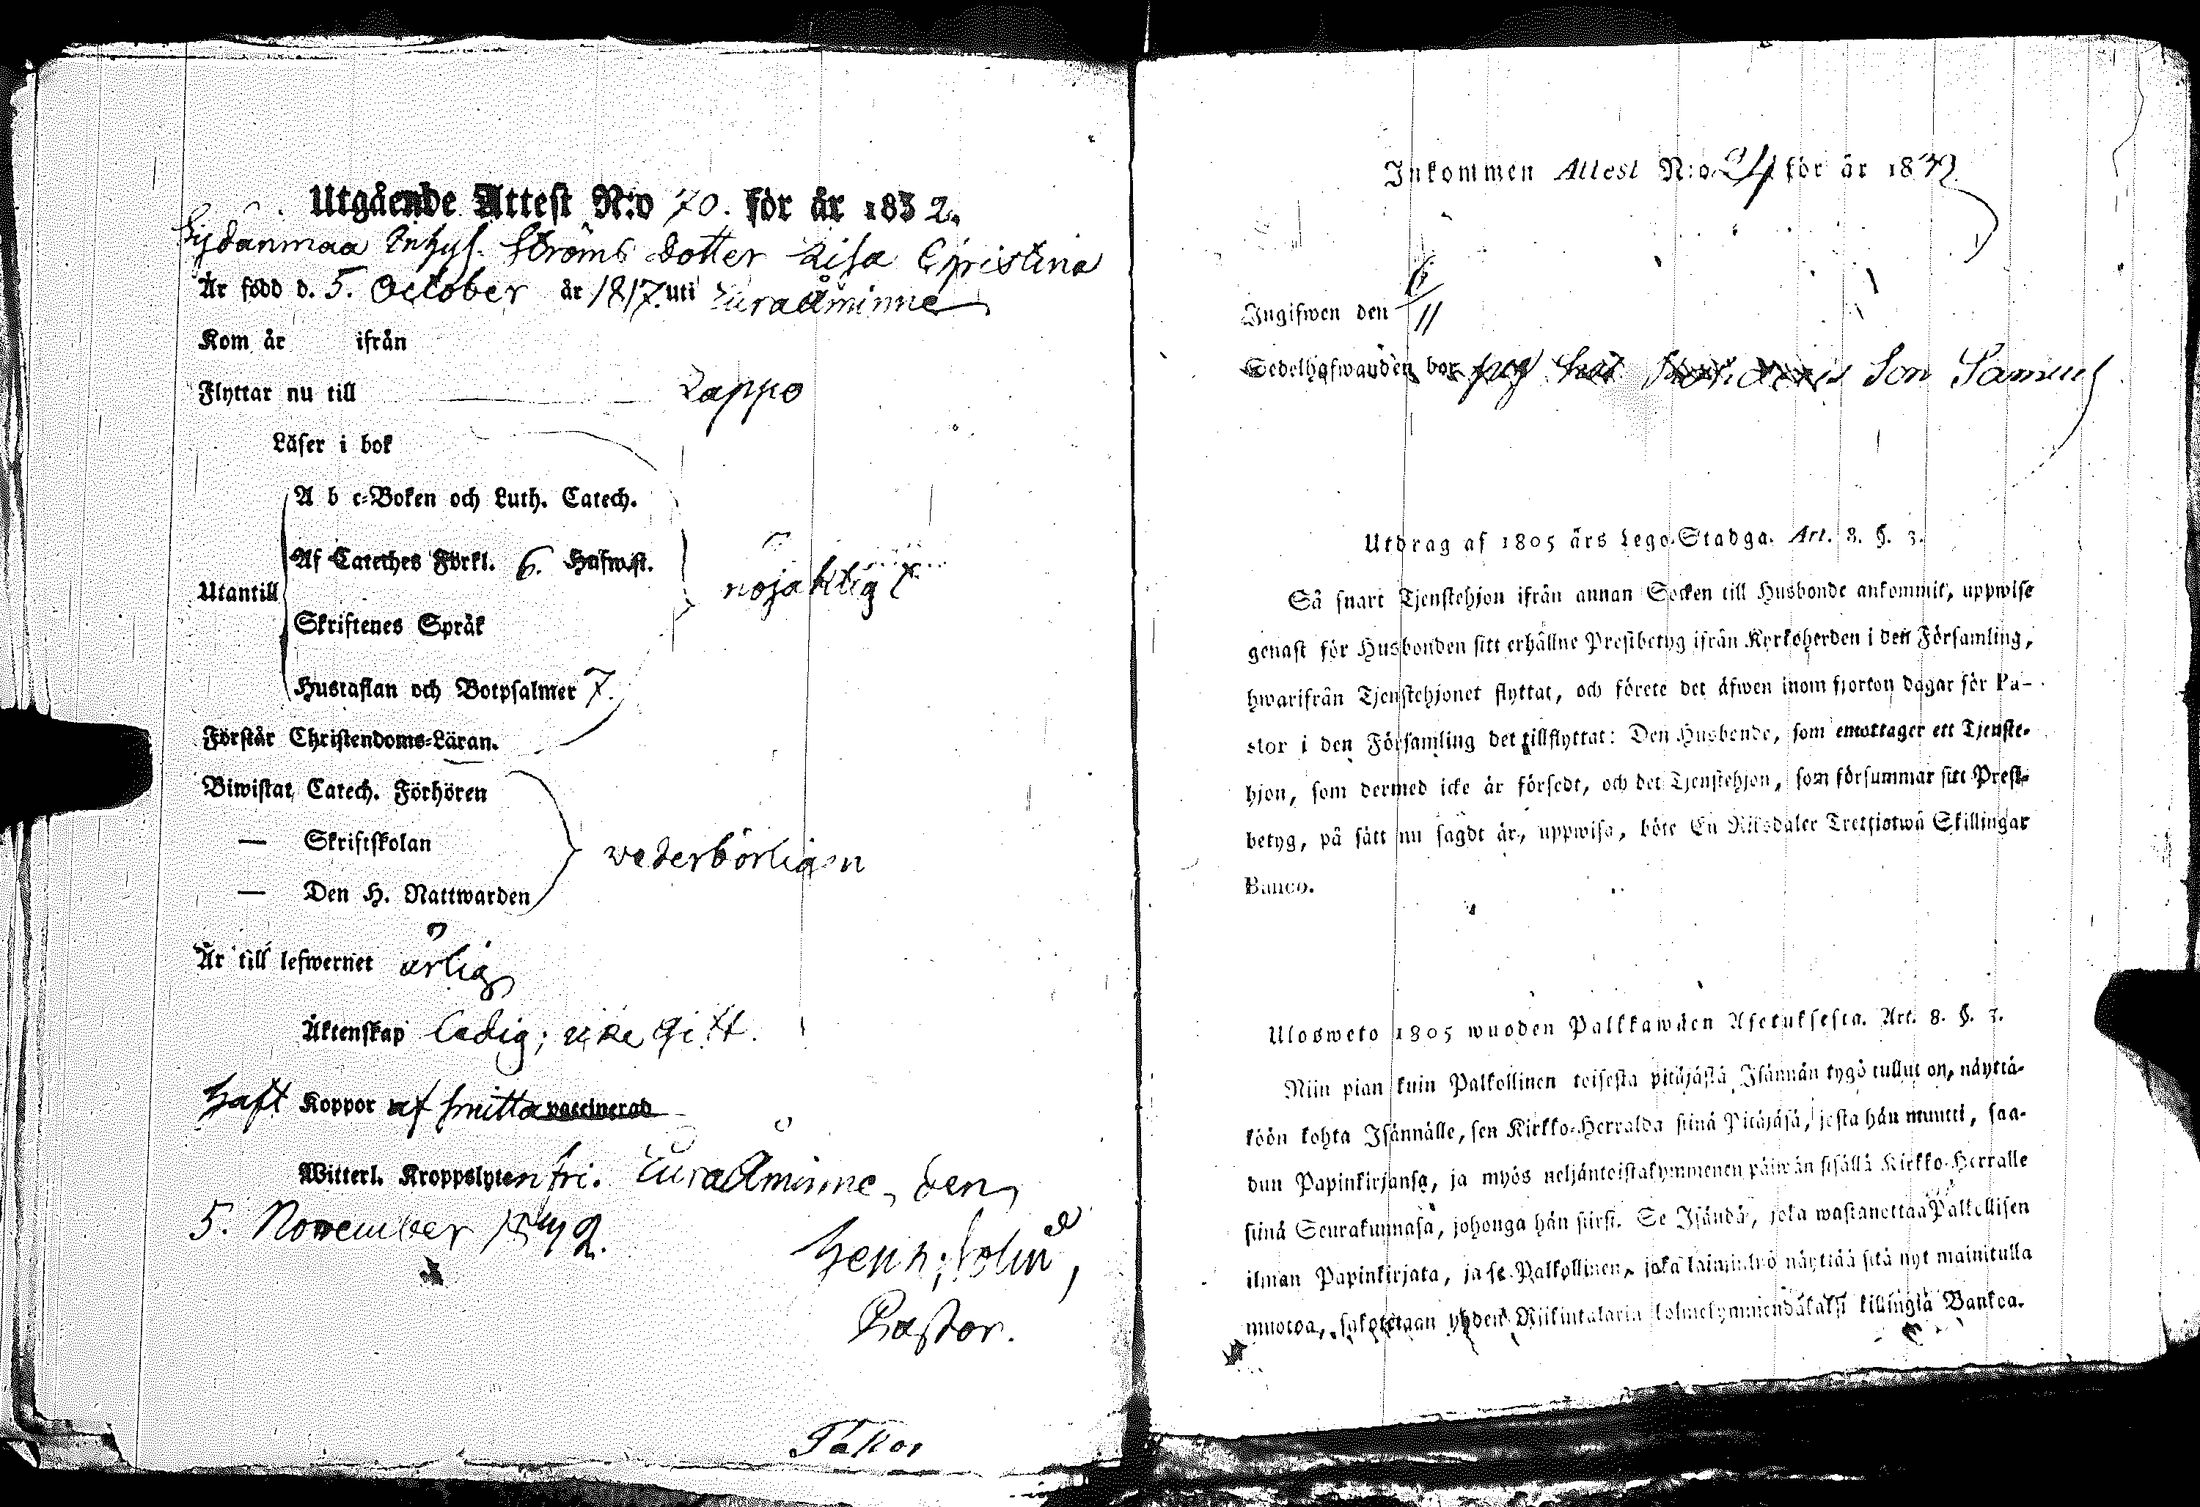 Utgående Attest N:o 70. för år 1832.
Inhys. Ströms dotter Lisa Christina
Är född d. 5. October år 1817. uti Euraåminne
Kom år ifrån
Flyttar nu till Lappo
Läser i bok
A b c-Boken och Luth. Catech.
Af Cateches Förkl. 6. Hufwst.
nöjaktigt
Utantill
Skriftenes Språk
Hustaflan och Botpsalmer 7.
Förstår Christendoms-Läran.
Biwistat Catech. Förhören
— Skriftskolan wederbörligen
— Den H. Nattwarden
Är till lefwernet ärlig
Äktenskap ledig; icke gift.
Haft Koppor af smitta vaccinerad
Witterl. Kroppslyten fri. Euraåminne, den
5. November 1842.
Pastor.
Inkommen Attest N:o 24 för år 1842
Ingifwen den 6/11
Sedelhafwanden bor son Samuel
Utdrag af 1805 års Lego-Stadga. Art. 8. §. 3.
Så snart Tjenstehjon ifrån annan Socken till Husbonde ankommit, uppwise
genast för Husbonden sitt erhållne Prestbetyg ifrån Kyrkoherden i den Församling,
hwarifrån Tjenstehjonet flyttat, och förete det äfwen inom fjorton dagar för Pa-
stor i den Församling det tillflyttat: Den Husbonde, som emottager ett Tjenste-
hjon, som dermed icke är försedt, och det Tjenstehjon, som försummar sitt Prest-
betyg, på sätt nu sagdt är, uppwisa, böte En Riksdaler Trettiotwå Skillingar
Banco.
Ulosweto 1805 wuoden Palkkawäen Asetuksesta. Art. 8. §. 3.
Niin pian kuin Palkollinen toisesta pitäjästä Isännän tygö tullut on, näyttä-
köön kohta Isännälle, sen Kirkko-Herralda siinä Pitäjäsä, josta hän muutti, saa-
dun Papinkirjansa, ja myös neljäntoistakymmenen päiwän sisällä Kirkko-Herralle
siinä Seurakunnasa, johonga hän siirsi. Se Isändä, joka wastanottaa Palkollisen
ilman Papinkirjata, ja se Palkollinen, joka laiminlyö näyttää sitä nyt mainitulla
muotoa, sakotetaan yhden Riikintalarin kolmekymmendäkaksi killingiä Bankoa.